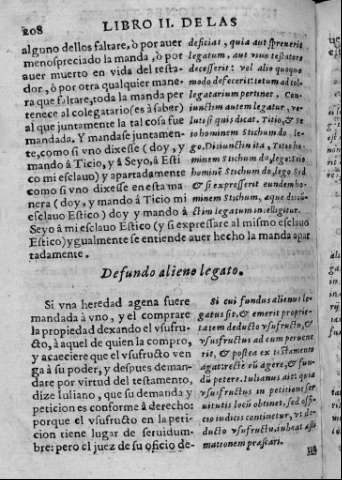 208 LIBRO II. DE LAS
alguno dellos faltare, ò por auer
menospreciado la manda, ò por
auer muerto en vida del testa-
dor, ò por otra qualquier mane-
ra que faltare, toda la manda per
tenece al colegatario (es à saber)
al que juntamente la tal cosa fue
mandada. Y mandase juntamen-
te, como si vno dixesse (doy, y
mando à Ticio, y à Seyo, à Esti
co mi esclauo) y apartadamente
como si vno dixesse en esta ma-
nera (doy, y mando à Ticio mi
esclauo Estico) doy y mando à
Seyo à mi esclauo Estico (y si expressare al mismo esclauo
Estico) ygualmente se entiende auer hecho la manda apar
tadamente.
deficiat, quia aut spreuerit
legatum, aut viuo testatore
decesserit: vel alio quoquo
modo defecerit: totum ad col-
legatarium pertinet. Con-
iunctim autem legatur, ve-
luti si quis dicat. Titio, & Se
io hominem Stichum do, le-
go. Disiunctim ita, Titio ho-
minem Stichum do, lego: Seio
hominẽ Stichum do, lego. Sed
& si expresserit eundem ho-
minem Stichum, aque disiũ-
ctim legatum intelligitur.
Defundo alieno legato.
Si vna heredad agena fuere
mandada à vno, y el comprare
la propiedad dexando el vsufru-
cto, à aquel de quien la compro,
y acaeciere que el vsufructo ven
ga à su poder, y despues deman-
dare por virtud del testamento,
dize Iuliano, que su demanda y
peticion es conforme à derecho:
porque el vsufructo en la peti-
cion tiene lugar de seruidum-
bre: pero el juez de su oficio de-
Si cui fundus alienus le-
gatus sit, & emerit proprie-
tatem deducto vsufructu, &
vsufructus ad eum peruene
rit, & postea ex testamento
agat: rectè eũ agere, & fun-
dũ petere. Iulianus ait: quia
vsufructus in petitione ser
uitutis locũ obtinet, sed offi-
cio iudicis continetur, vt de-
ducto vsufructu, iubeat æsti-
mationem præstari.